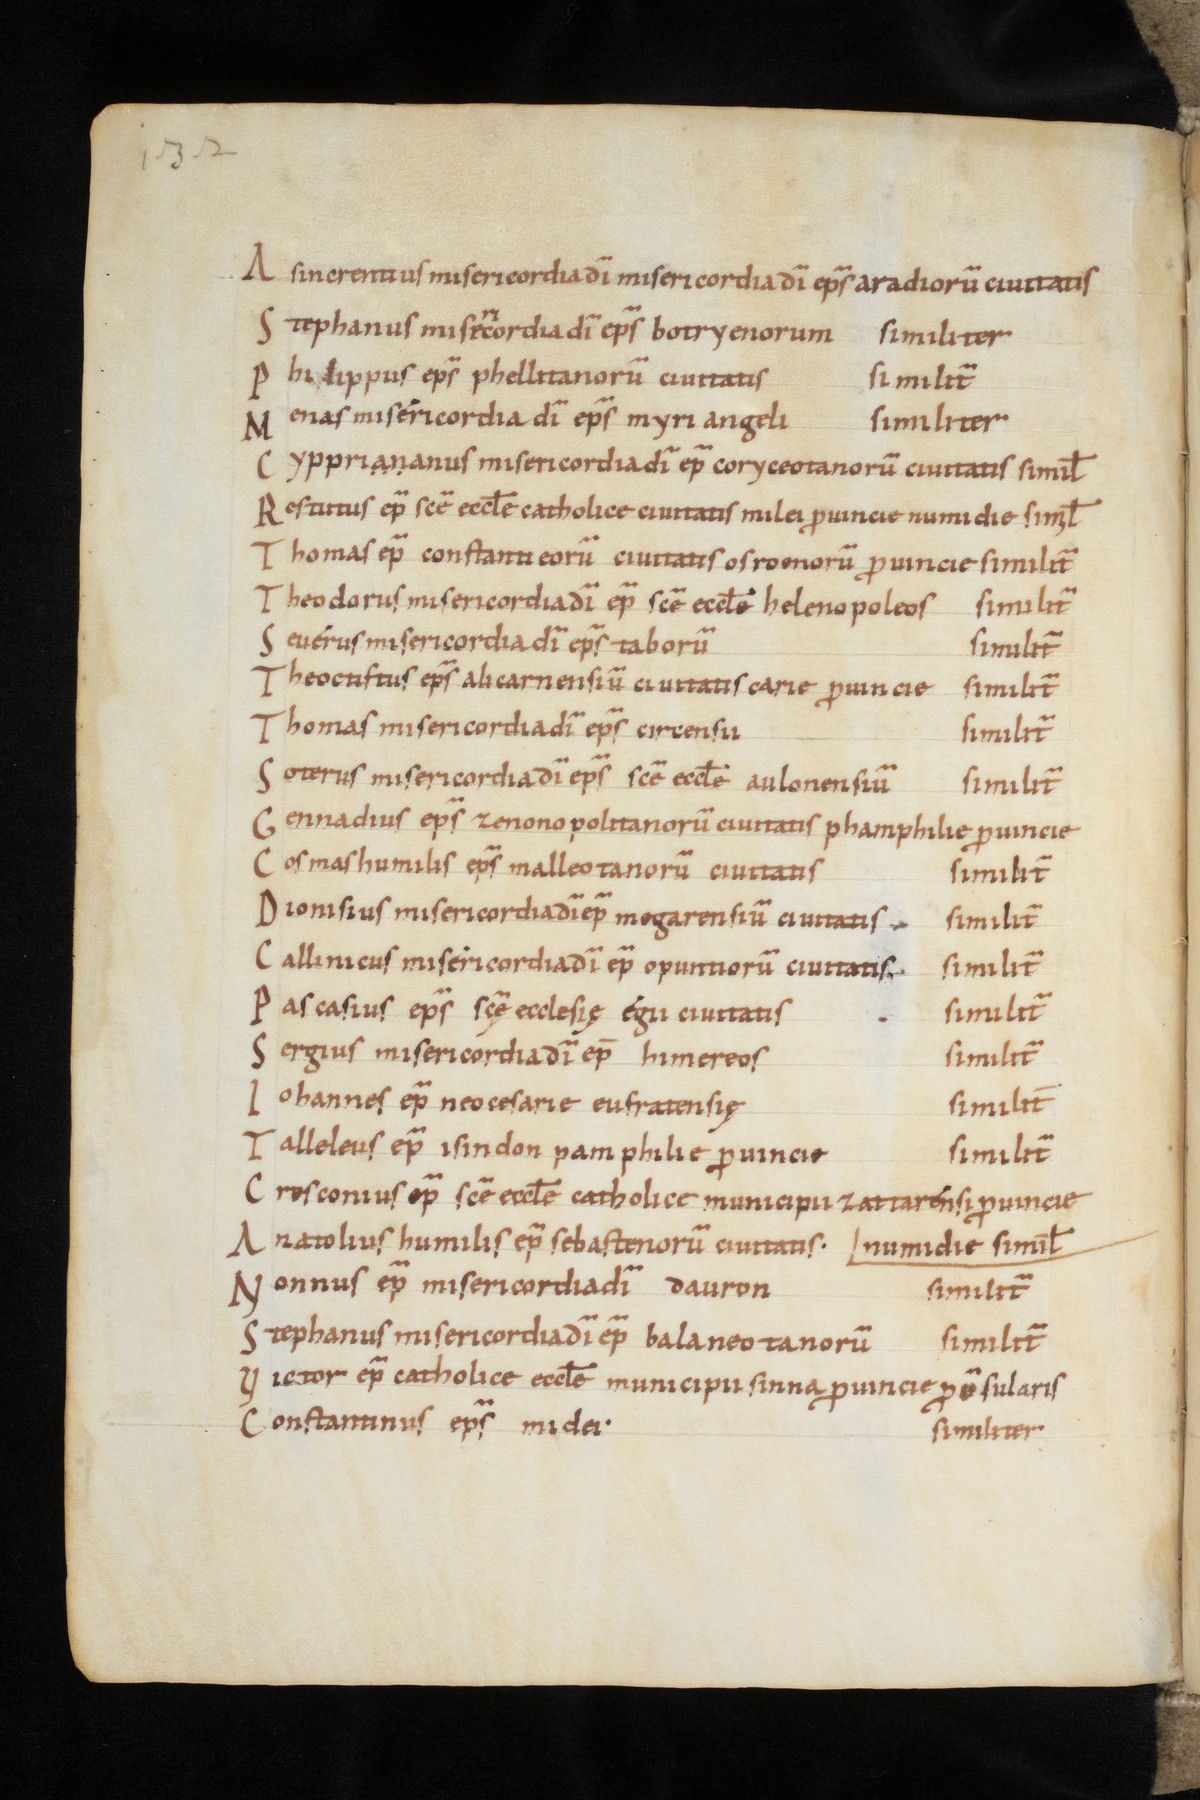 132
Asincrentius misericordia dī misericordia dī ep̄s aradiorū ciuitatis
Stephanus misericordia dī ep̄s botryenorum similiter
Philippus ep̄s phellitanorū ciuitatis similit̄
Menas misericordia dī ep̄s myri angeli similiter
Cyppriananus misericordia dī ep̄ coryceotanorū ciuitatis simil̄
Restitutus ep̄ scē eccl̄e catholice ciuitatis milei ꝓuincie numidie simil̄
Thomas ep̄ constantieorū ciuitatis osroenorū ꝓuincie similit̄
Theodorus misericordia dī ep̄ scē eccl̄e helenopoleos similit̄
Seuerus misericordia dī ep̄s taborū similit̄
Theoctistus ep̄s alicarnensiū ciuitatis carie ꝓuincie similit̄
Thomas misericordia dī ep̄s circensii similit̄
Soterus misericordia dī ep̄s scē eccl̄e aulonensiū similit̄
Gennadius ep̄s zenonopolitanorū ciuitatis phamphilie ꝓuincie
Cosmas humilis ep̄s malleotanorū ciuitatis similit̄
Dionisius misericordia dī ep̄ megarensiū ciuitatis similit̄
Callinicus misericordia dī ep̄ opuntiorū ciuitatis similit̄
Pascasius ep̄s scę̄ ecclesię egii ciuitatis similit̄
Sergius misericordia dī ep̄ himereos similit̄
Iohannes ep̄ neocesarie eufratensię similit̄
Talleleus ep̄ isindon pamphilie ꝓuincie similit̄
Cresconius ep̄ scē eccl̄e catholice municipii zattarensi ꝓuincie
Anatolius humilis ep̄ sebastenorū ciuitatis· numidie simil̄
Nonnus ep̄ misericordia dī dauron similit̄
Stephanus misericordia dī ep̄ balaneotanorū similit̄
Victor ep̄ catholice eccl̄e municipii sinna ꝓuincie ꝓōsularis
Constantinus ep̄s midei· similiter